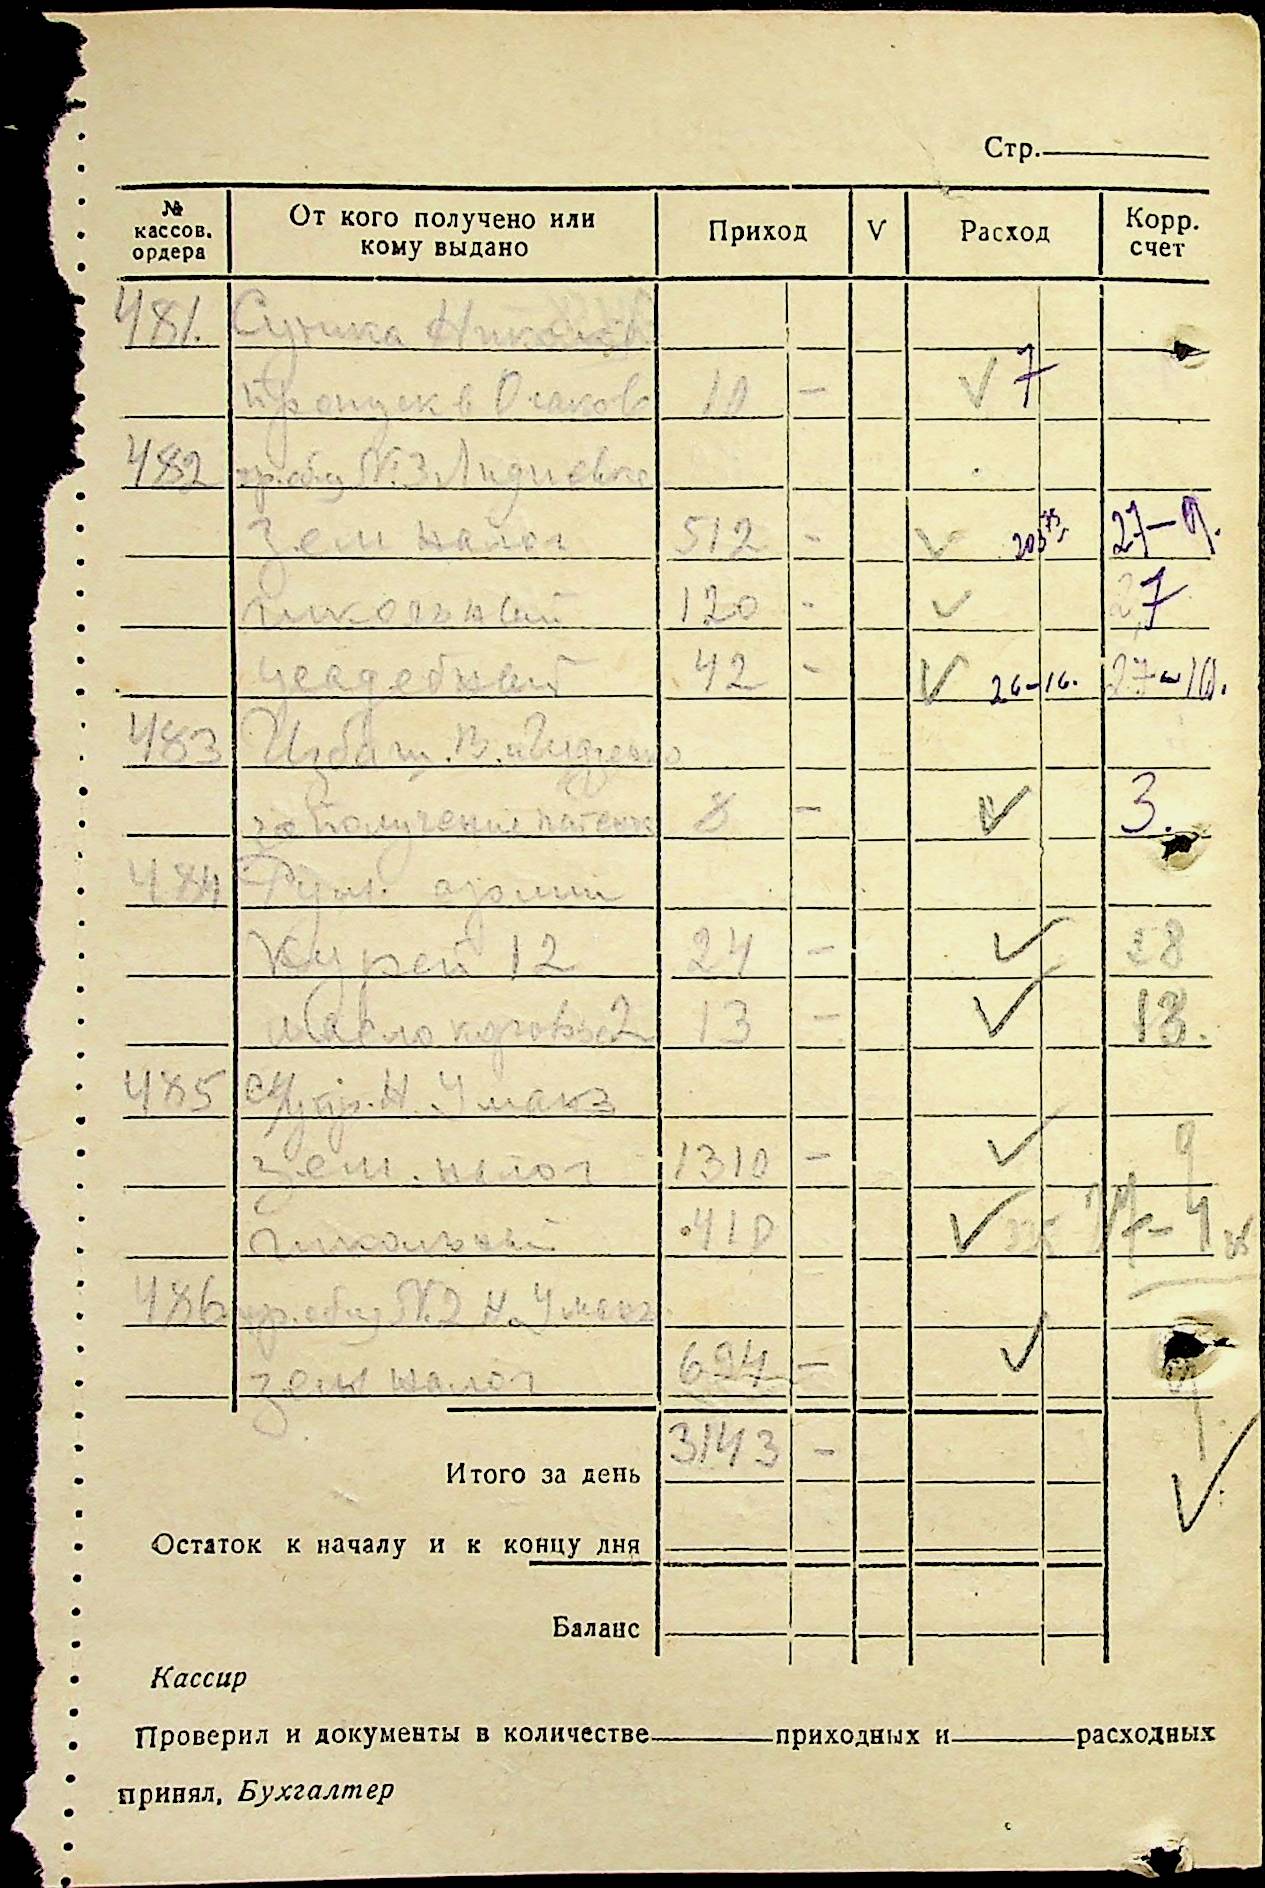 Стр.
№ кассов. ордера От кого получено или кому выдано Приход V Расход Корр. счет
481. Сушка Николай
пропуск в Очаков 10 - 7
482 гр. общ №3 Лидиевка
Зем налог 512 - 203 75 27-9.
школьный 120 - 27
усадебный 42 - 26-16. 27-10.
483 В.
за получение патента 8 - 3.
484 Рум. армии
Курей 12 24 - 18
масло коровье 2 13 - 13.
485 с/упр. Н. Уманз
зем. налог 1310 - 9
школьный 410 27-4
486 гр. общ №2 Н. Уманз.
зем налог 694 - 9.
3143 -
Итого за день
Остаток к началу и к концу дня
Баланс
Кассир
Проверил и документы в количестве приходных и расходных
принял, Бухгалтер